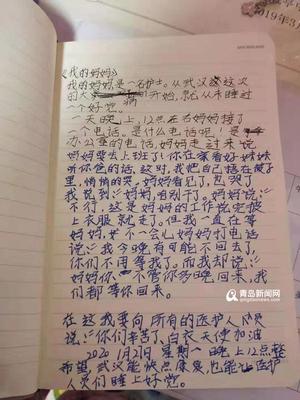 《我的妈妈》
我的妈妈,是一名护士。从武汉这次
的大病开始,就从未睡过
一个好觉。
一天晚上,12点左右妈妈接了
一个电话。是什么电话呢!是
办公室的电话,妈妈走过来说
妈妈要去上班了!你在家看好妹妹
听你爸的话,这时,我把自己捂在被子
里,悄悄的哭,妈妈看见了,也哭了
我说到:“妈妈,别干了。妈妈说:“
不行,这是妈妈的工作说完披
上衣服就走了。但我一直在等
妈妈,不一会妈妈打电话
说:“我今晚有可能不回去了,
你们不用等我了。而我却说:“
妈妈你 不管你多晚回来,我
们都等你回来。
在这我要向所有的医护人员
说:“你们辛苦了,白衣天使加油
2020 1月27日 星期一 晚上12点整
希望,武汉能快点康复,也能让医护
人员们睡上好觉。
2019年3月
青岛新闻网